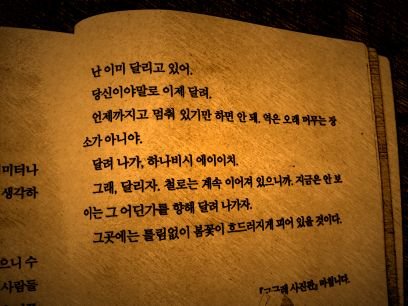 난 이미 달리고 있어.
당신이야말로 이제 달려.
언제까지고 멈춰 있기만 하면 안 돼. 역은 오래 머무는 장
소가 아니야.
달려 나가, 하나비시 에이이치.
그래, 달리자. 철로는 계속 이어져 있으니까. 지금은 안 보
이는 그 어딘가를 향해 달려 나가자.
그곳에는 틀림없이 봄꽃이 흐드러지게 피어 있을 것이다.
사진관』 마칩니다.
미터나
생각하
으니 수
사람들